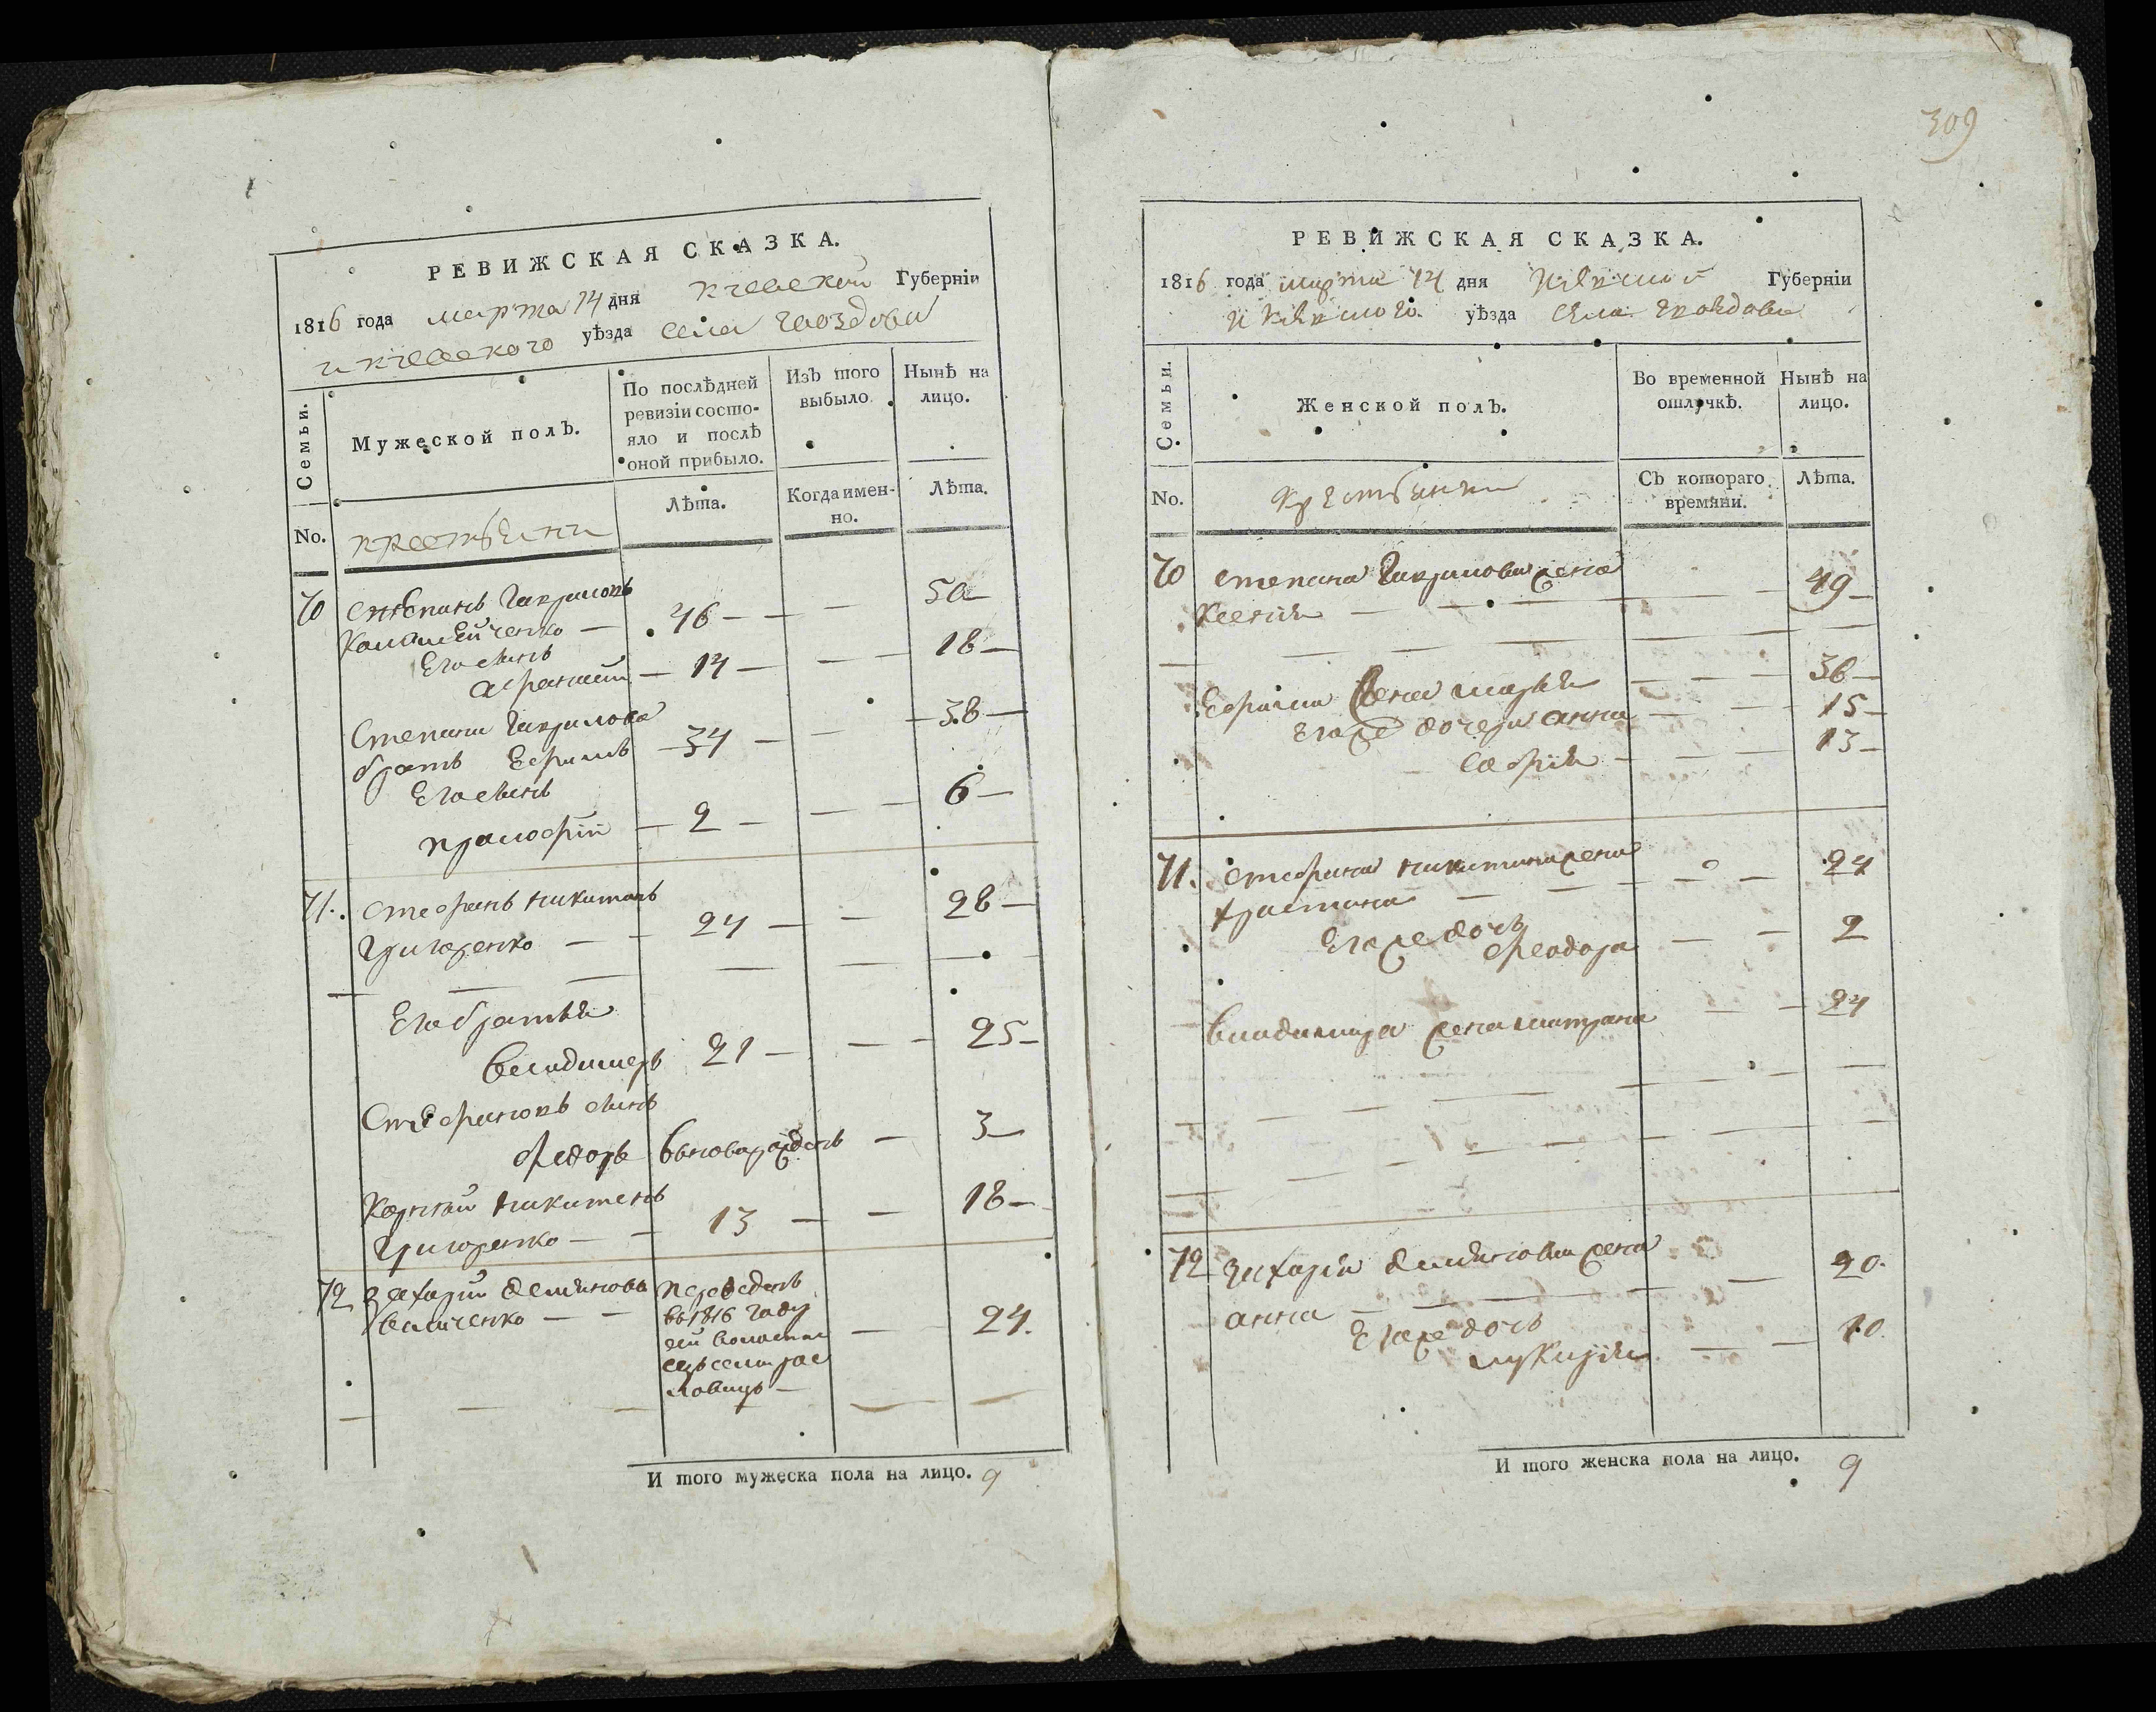 309
РЕВИЖСКАЯ СКАЗКА.
1816 года марта 14 дня киевской Губерніи
и киевского уѣзда села гвоздова
Семьи.
Мужеской полЪ.
По послѣдней
ревизіи состо-
яло и послѣ
оной прибыло.
ИзЪ того
выбыло.
НынѢ на
лицо.
No.
крестьяни
Лѣта.
Когда имен-
но.
Лѣта.
70 Степанъ Гавриловъ
Коломѣйченко — 46 — — 50
Его сынъ
Афанасий — 14 — — 18
Степана Гаврилова
братъ Ефимъ 34 — — 38
Его сынъ
прокофій — 2 — — 6
71. Стефанъ никитинъ
Григоренко — 24 — — 28
Его братья
Владимеръ 21 — — 25
Стефановъ сынъ
Федоръ вновь рожденъ — 3
Корнѣй никитенъ
Григоренко — 13 — — 18
72 Захарій Демяновъ переведенъ
въ 1816 году
24.
И того мужеска пола на лицо. 9
РЕВИЖСКАЯ СКАЗКА.
1816 года марта 14 дня Киевской Губерніи
и Киевского уѣзда села Гвоздова
Семьи.
Женской полЪ.
Во временной
отлучкѣ.
НынѢ на
лицо.
No.
Крестьянки
СЪ котораго
времяни.
Лѣта.
70 Степана Гаврилова жена
Ксенія — — — 49
Ефима жена марья — — 36
Его же дочери анна — — 15
Софія — — 13
71. Стефана никитина жена
христина — — — 24
Его же дочь
Феодора — — 2
Владимира жена матрона — — 24
72 Захарія Демянова жена
анна — — — 20.
Его же дочь
лукирія — — 10.
И того женска пола на лицо. 9